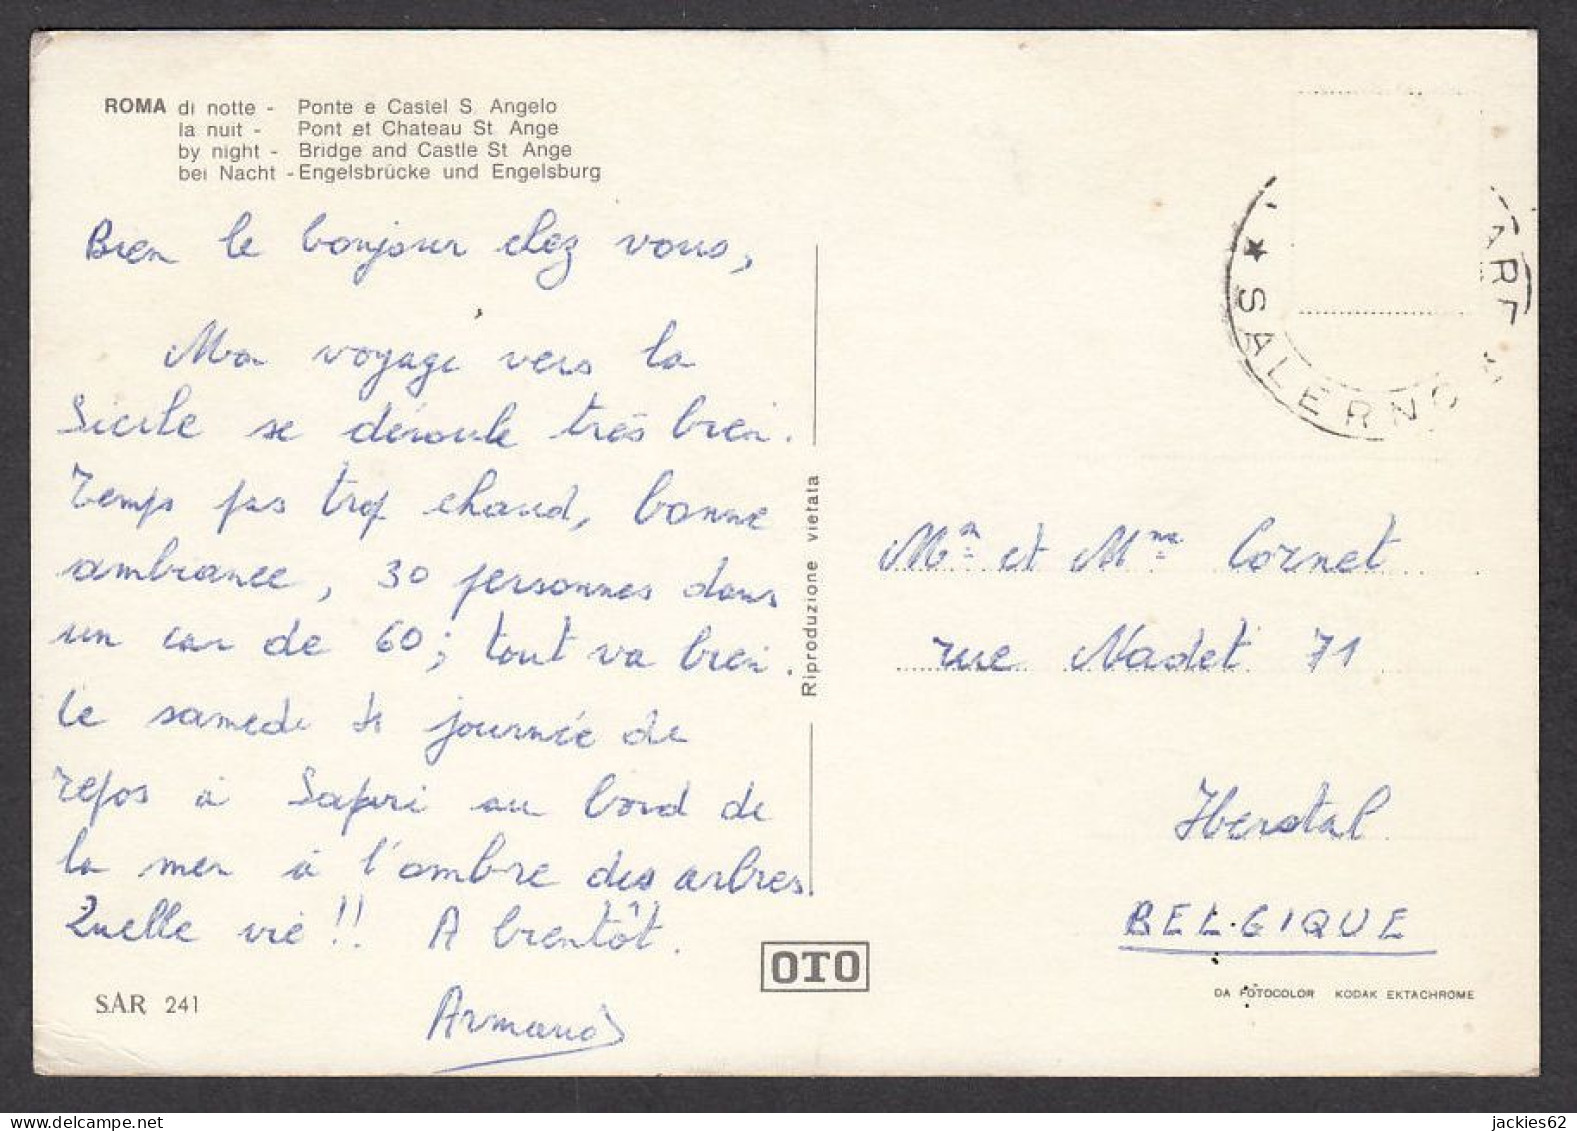 ROMA di notte - Ponte e Castel S. Angelo
la nuit - Pont et Chateau St. Ange
by night - Bridge and Castle St. Ange
bei Nacht - Engelsbrücke und Engelsburg
Bien le bonjour chez vous,
Mon voyage vers la
Sicile se déroule très bien.
Temps pas trop chaud, bonne
ambiance, 30 personnes dans
un car de 60 ; tout va bien.
Le samedi journée de
repos à Sapri au bord de
la mer à l'ombre des arbres.
Quelle vie !! A bientôt.
Armand
SAR 241
Riproduzione vietata
OTO
★ SALERNO
Mr et Mme Cornet
rue Nadet 71
Herstal
BELGIQUE
DA FOTOCOLOR KODAK EKTACHROME
jackies62
delcampe.net